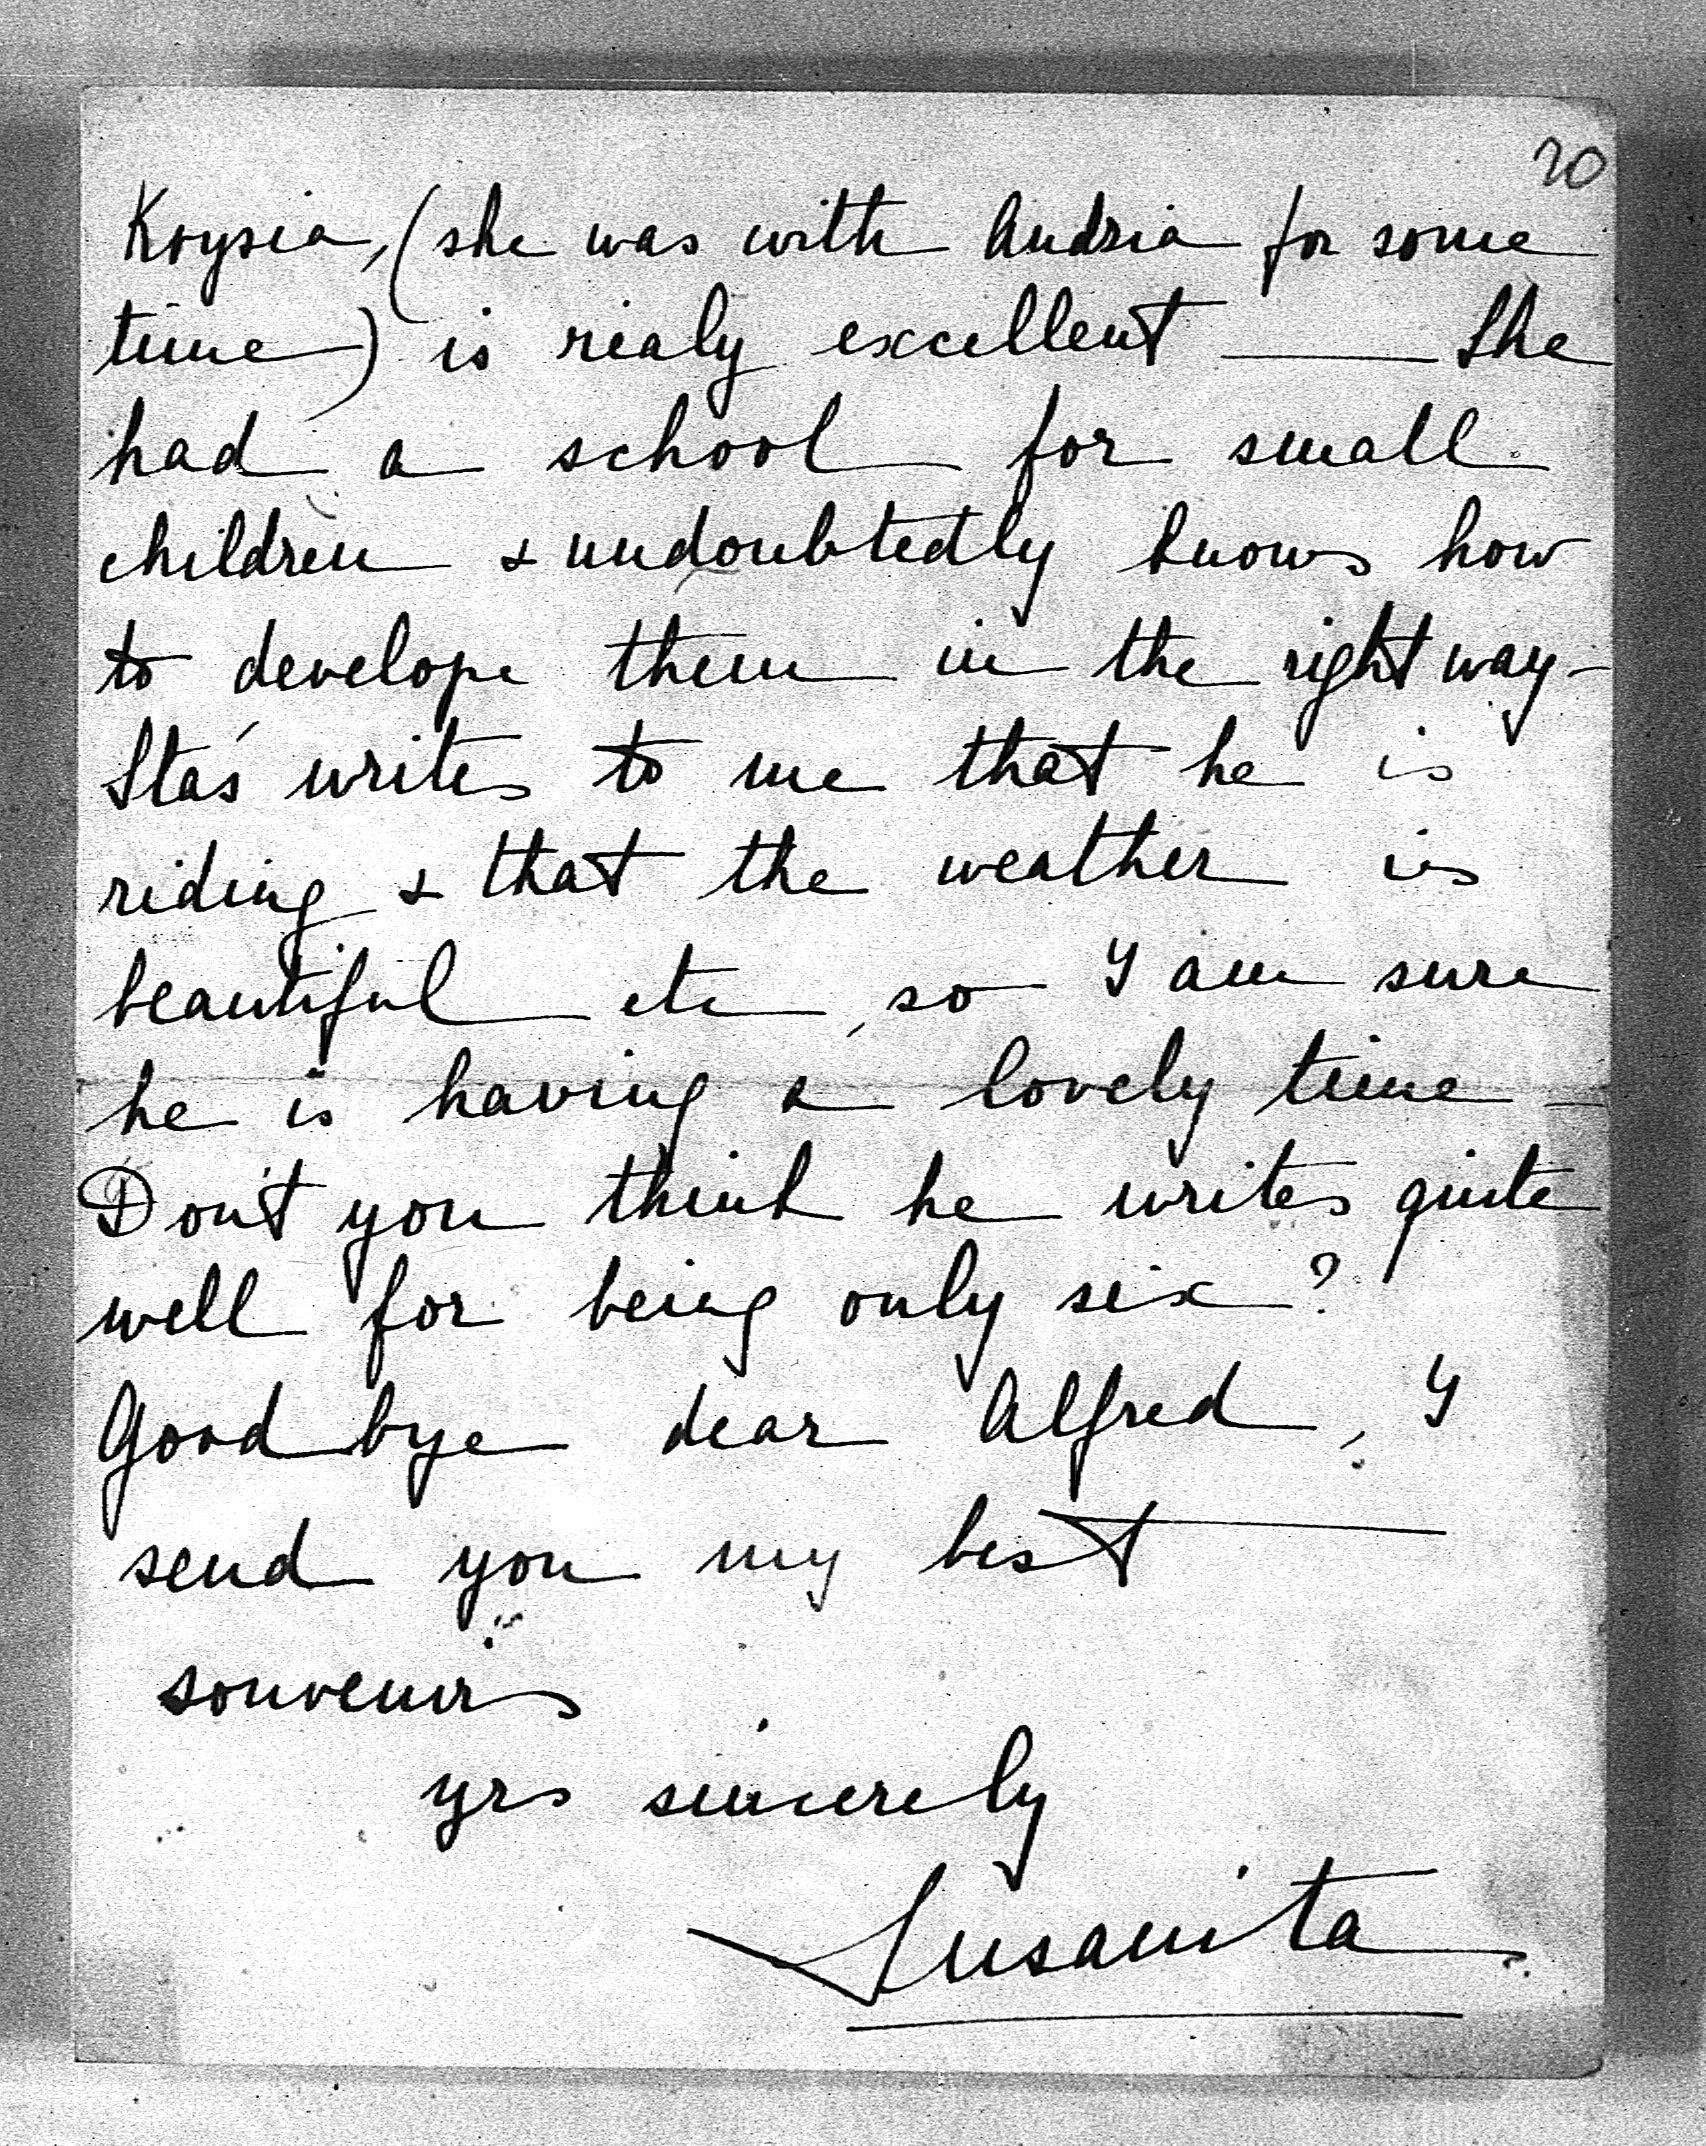 20
Krysia, (she was with Andzia for some
time) is realy excellent — She
had a school for small
children & undoubtedly knows how
to develope them in the right way -
Staś writes to me that he is
riding & that the weather is
beautiful etc, so I am sure
he is having a lovely time -
Don't you think he writes quite
well for being only six?
Good bye dear Alfred, I
send you my best
souvenirs
yrs sincerely
Susanita